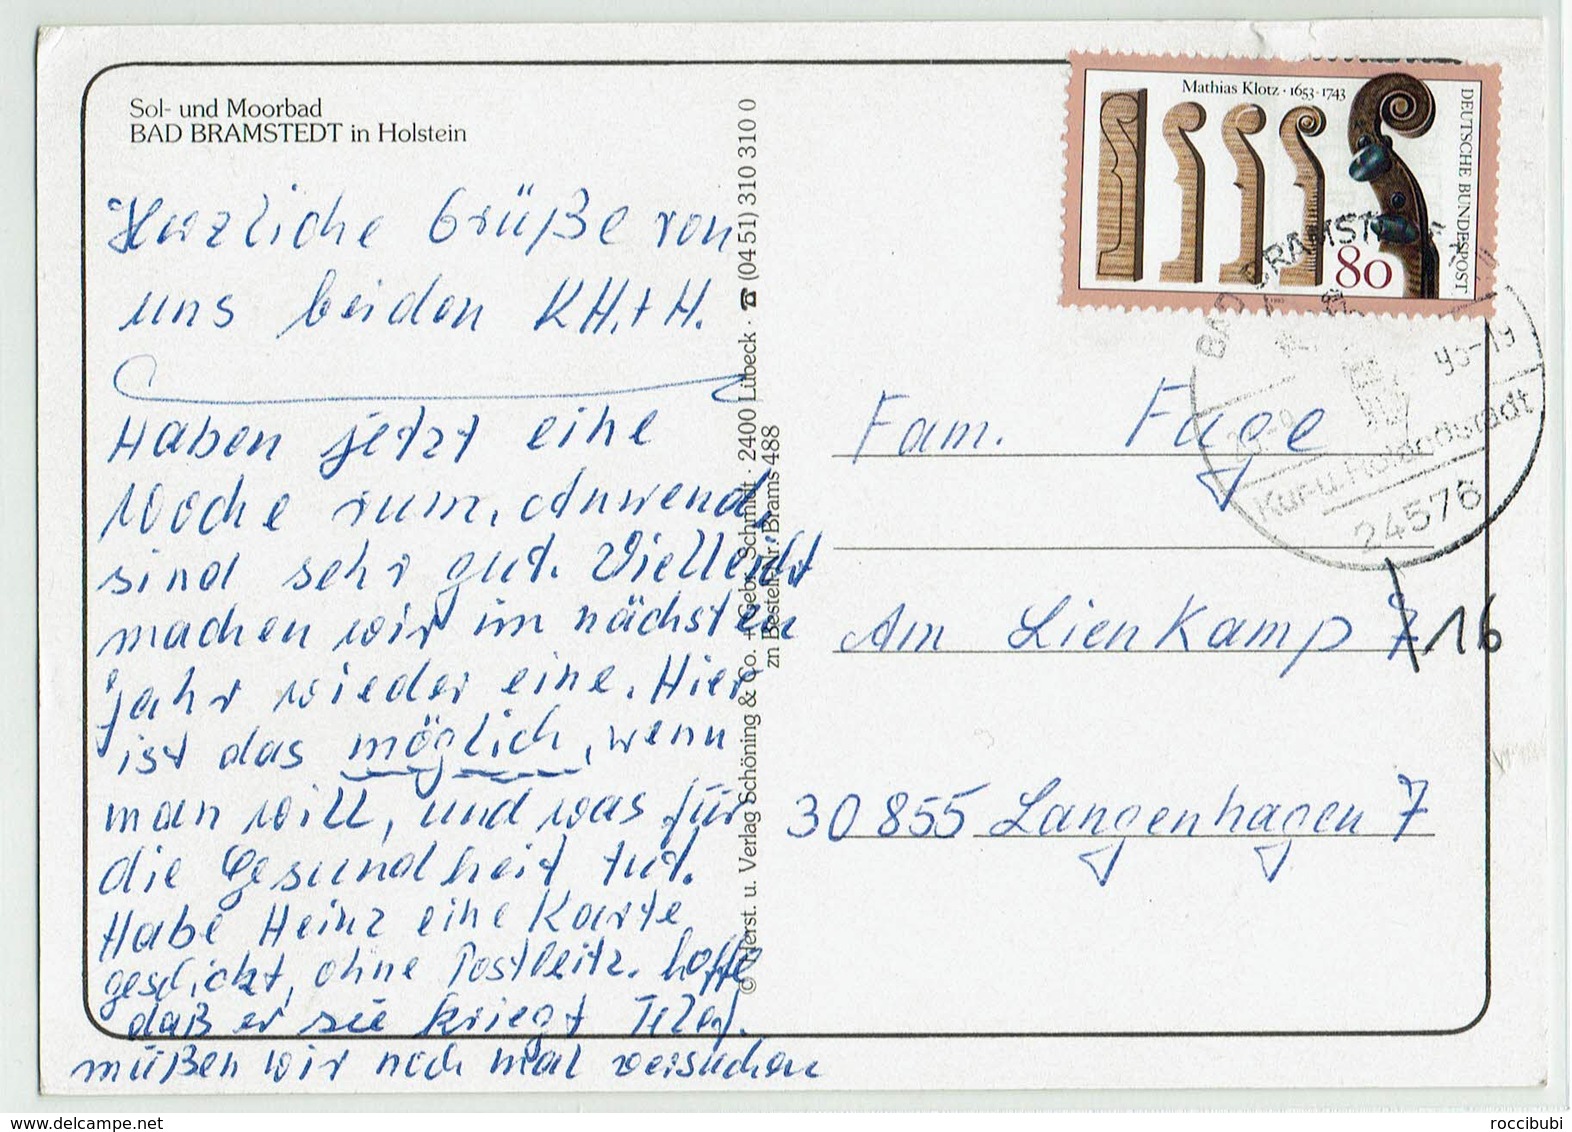 Sol- und Moorbad
BAD BRAMSTEDT in Holstein
Herzliche Grüße von
uns beiden KH.+H.
Haben jetzt eine
Woche rum, Anwend.
sind sehr gut. Vielleicht
machen wir im nächsten
Jahr wieder eine. Hier
ist das möglich, wenn
man will, und was für
die Gesundheit tut.
Habe Heinz eine Karte
geschickt, ohne Postleitz. hoffe
daß er sie kriegt Telef.
müßen wir noch mal versuchen
© Herst. u. Verlag Schöning & Co. + Gebr. Schmidt · 2400 Lübeck · ☎ (04 51) 310 310 0
zn Bestell-Nr. Brams 488
Mathias Klotz · 1653-1743
DEUTSCHE BUNDESPOST
80
BAD BRAMSTEDT
93-19
Kur- u. Rolandstadt
24576
Fam. Füge
Am Lienkamp 7 16
30 855 Langenhagen 7
roccibubi